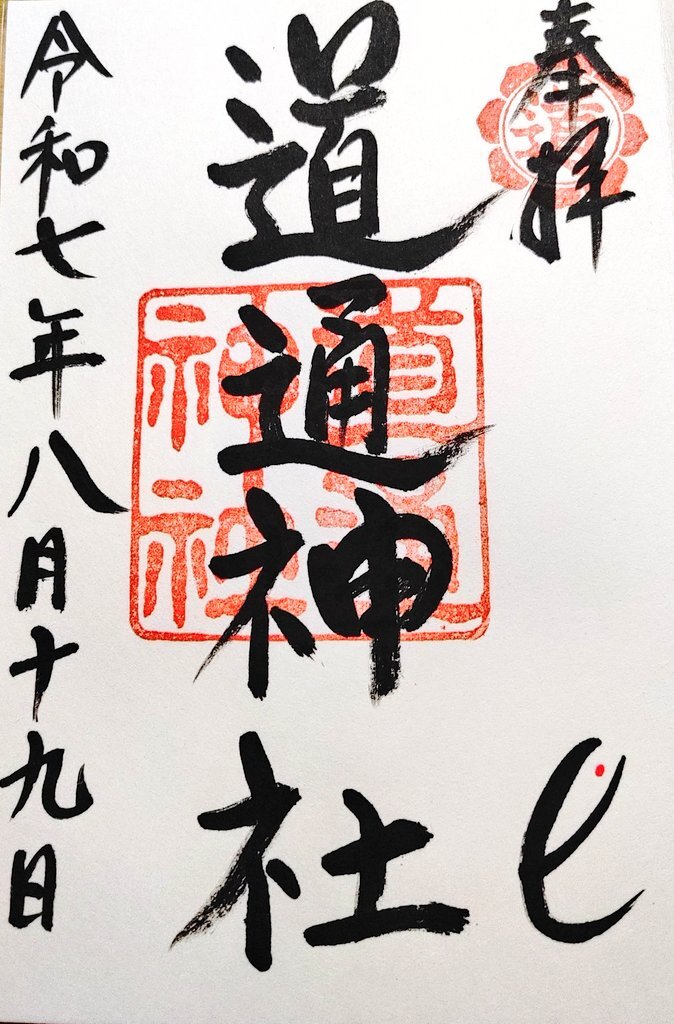 奉拝
道通神社
道通
神社
令和七年八月十九日